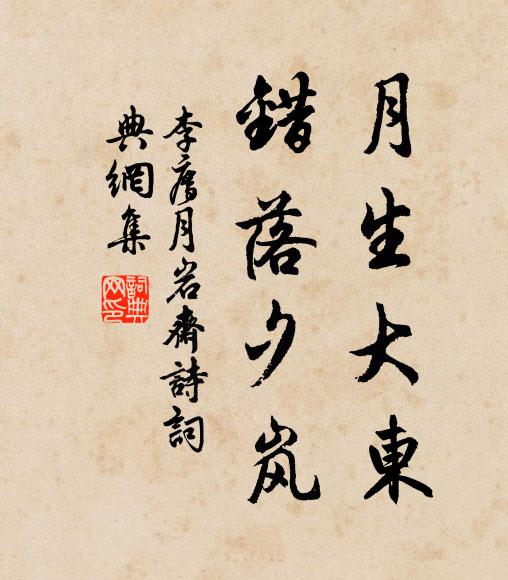 月生大東
錯落夕岚
李廌月岩齋詩詞
典網集
詞典
网印